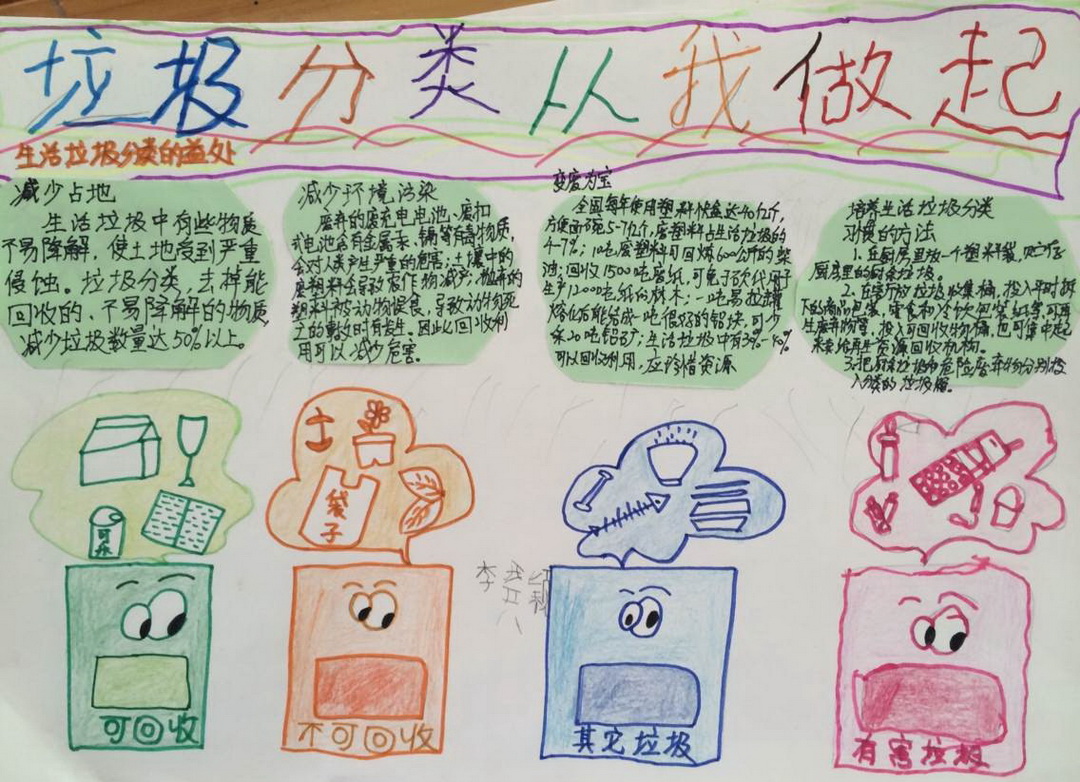 垃圾分类从我做起
生活垃圾分类的益处
减少占地
生活垃圾中有些物质
不易降解，使土地受到严重
侵蚀。垃圾分类，去掉能
回收的、不易降解的物质
减少垃圾数量达50%以上。
减少环境污染
废弃的废充电电池、废扣
式电池含有金属汞、镉等有毒物质，
会对人类产生严重的危害；土壤中的
废塑料会导致农作物减产；抛弃的
塑料被动物误食，导致动物死
亡的事故时有发生。因此回收利
用可以减少危害。
变废为宝
全国每年使用塑料快盒达40亿个，
方便面碗5-7亿个，废塑料占生活垃圾的
4-7%；10吨废塑料可回炼600公斤的柴
油；回收1500吨废纸，可免于砍伐用于
生产1200吨纸的林木；一吨易拉罐
熔化后能结成一吨很好的铝块，可少
采20吨铝矿；生活垃圾中有30%-40%
可以回收利用，应珍惜资源
培养生活垃圾分类
习惯的方法
1、在厨房里放一个塑料袋，
厨房里的厨余垃圾。
2、在客厅放垃圾收集桶，投入平时拆
下的商品包装，零食和冷饮包装红等，可再
生废弃物等，投入可回收物桶，也可集中起
来卖给再生资源回收机构。
3、把厨余垃圾和危险废弃物分别投
入分类的垃圾桶。
袋
子
可
乐
李
可回收
不可回收
其它垃圾
有害垃圾